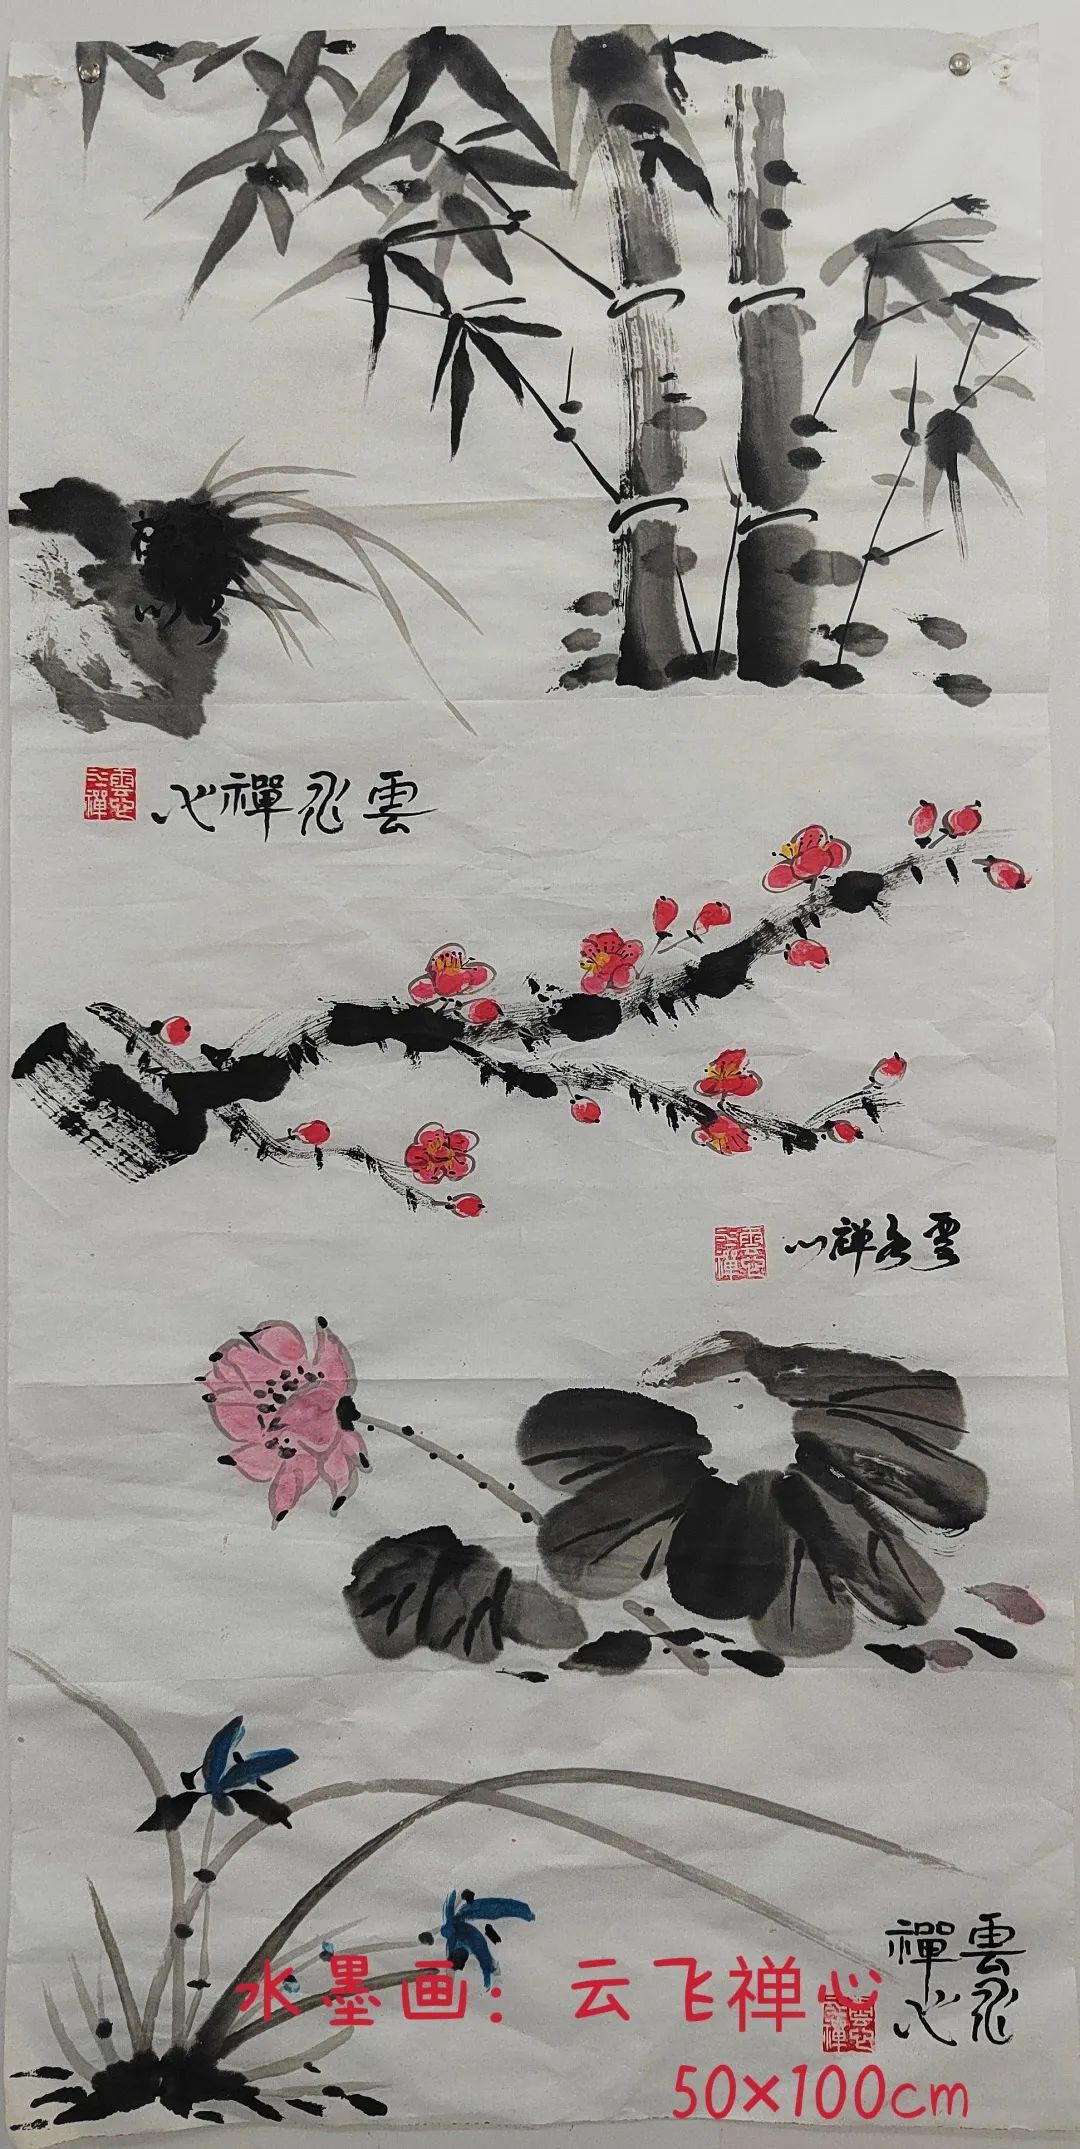 雲飛禪心
雲飛禅心
雲飛
禪心
水墨画：云飞禅心
50×100cm